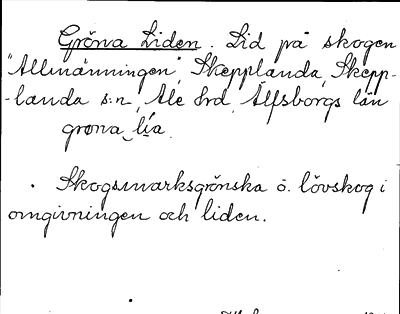 Gröna Liden. Lid på skogen
"Allmänningen", Skepplanda, Skepp-
-landa s:n, Ale hrd, Älfsborgs län
grøna lía.
Skogsmarksgrönska o. lövskog i
omgivningen och liden.